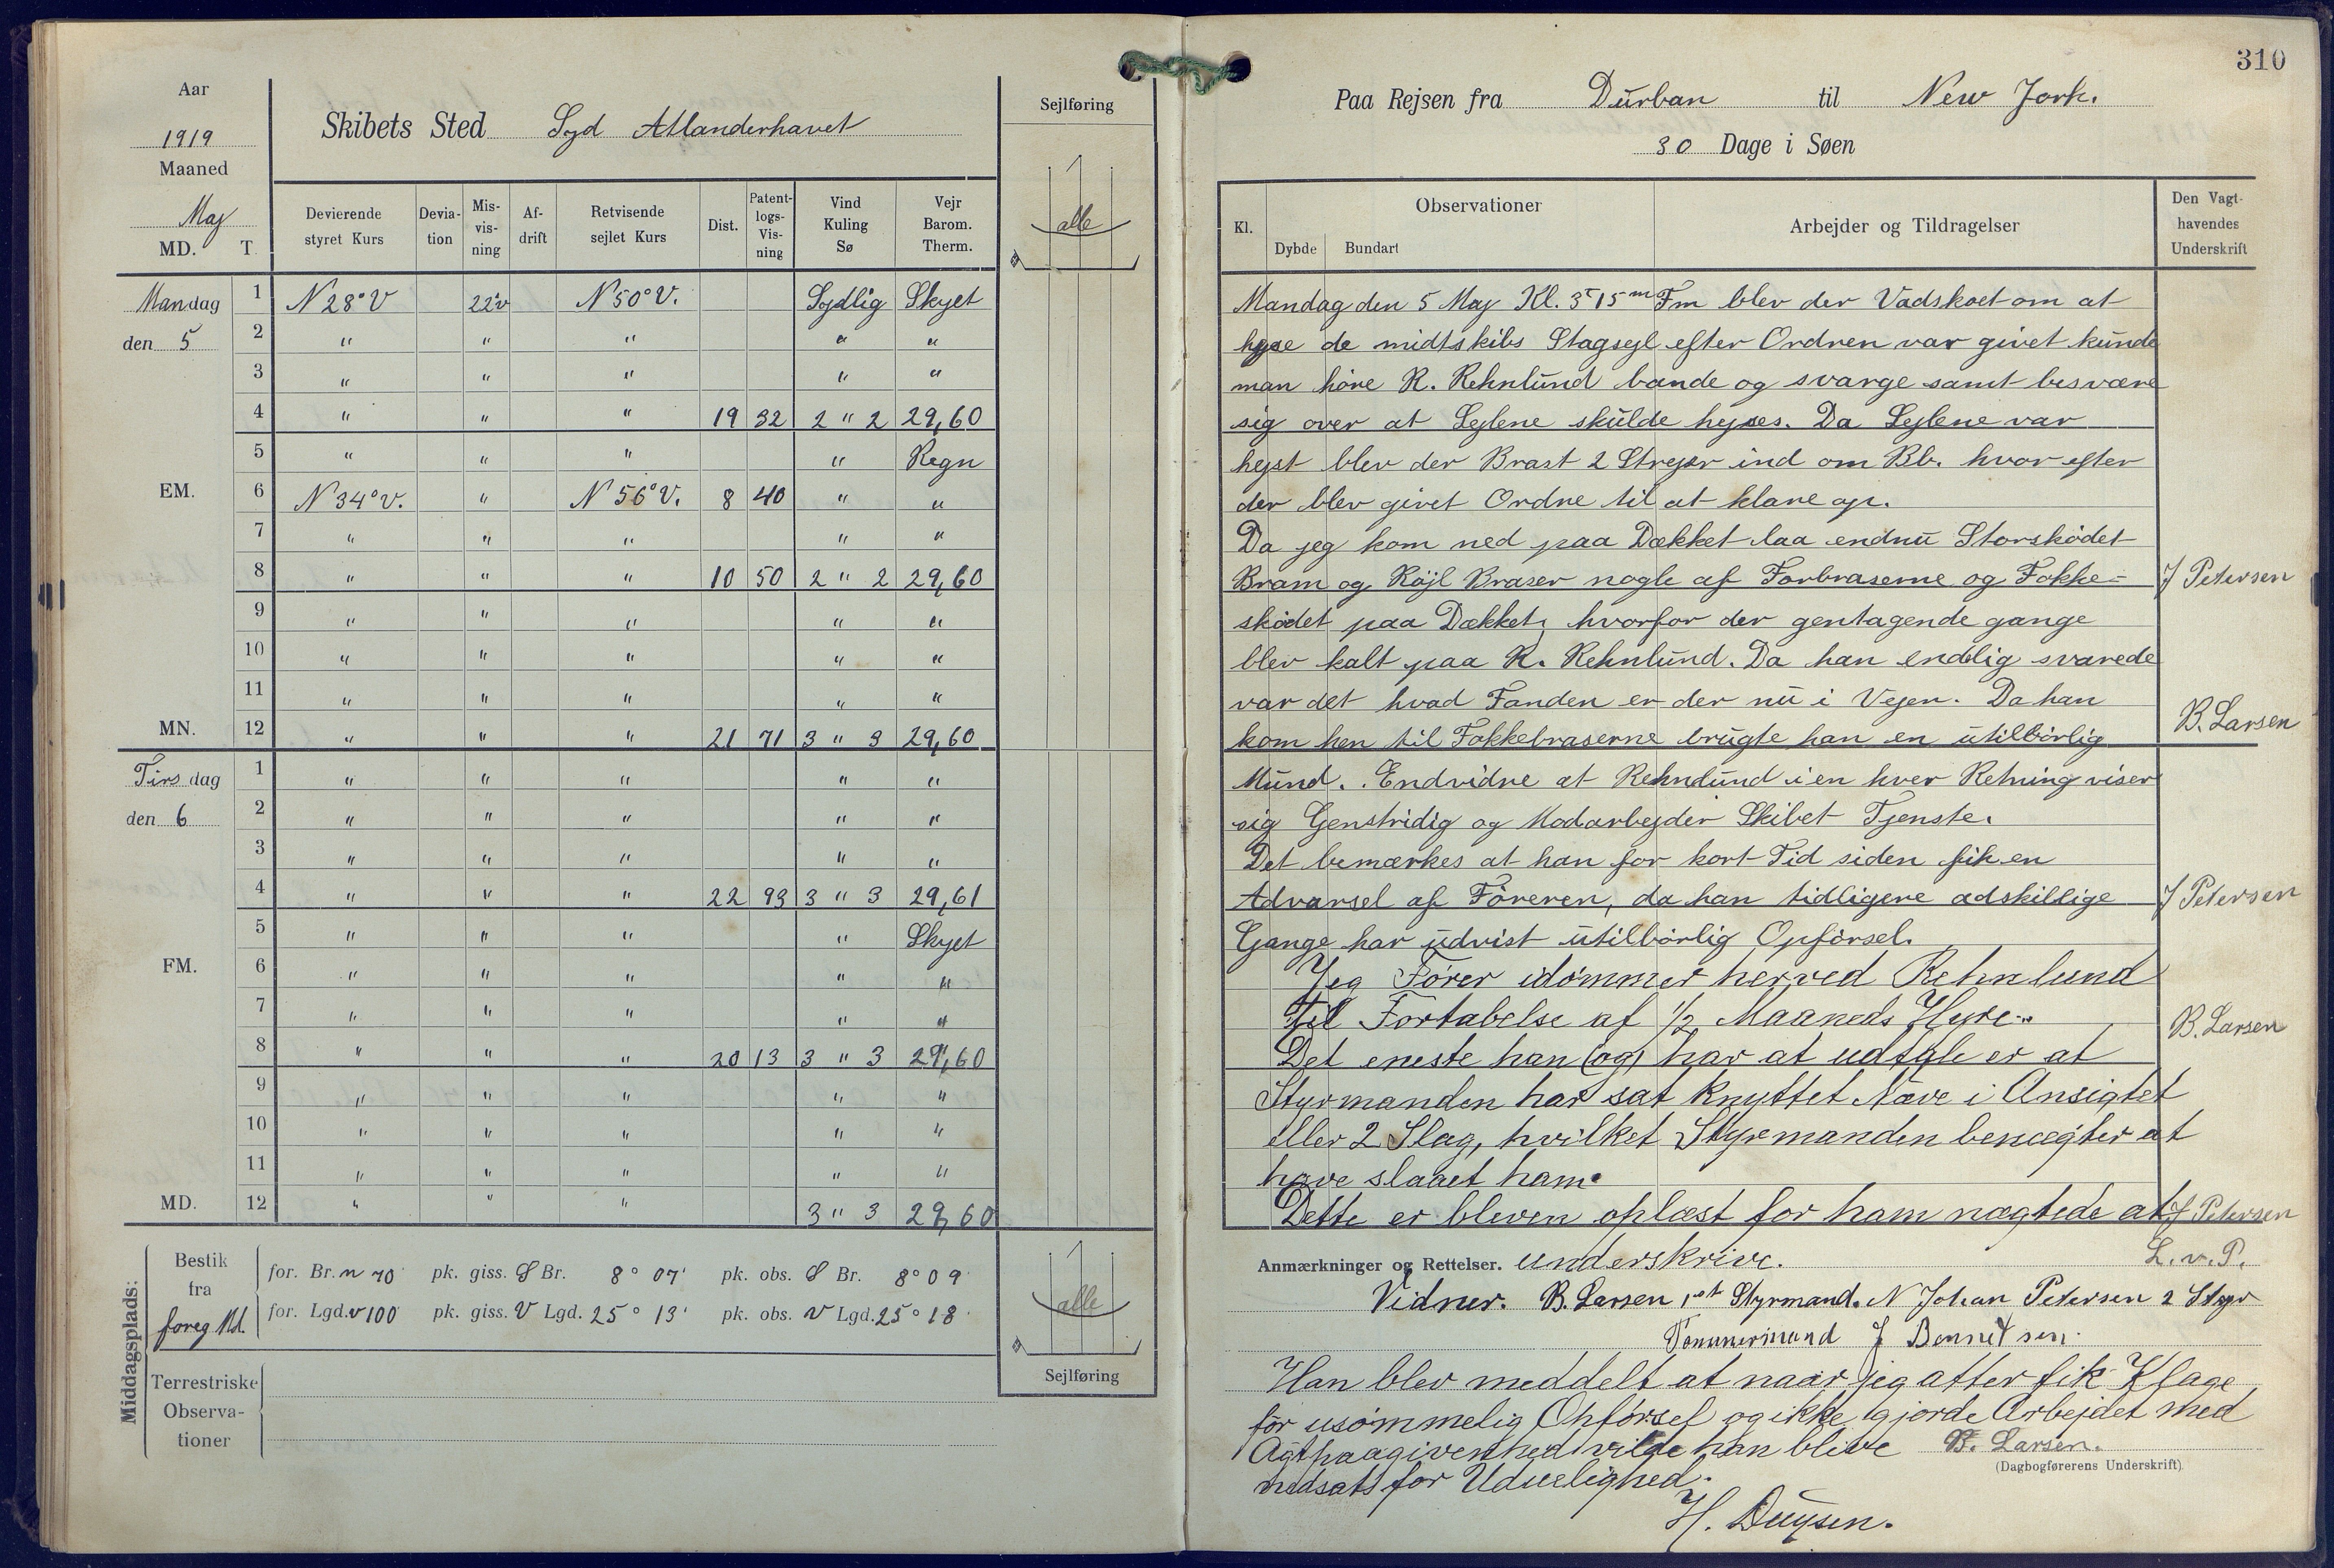 310
Aar
1919
Maaned
Maj
MD. T.
Skibets Sted Syd Atlanderhavet
Sejlføring
alle
Devierende styret Kurs
Devia-tion
Mis-vis-ning
Af-drift
Retvisende sejlet Kurs
Dist.
Patent-logs-Vis-ning
Vind Kuling Sø
Vejr Barom. Therm.
Mandag 1 N 28° V 22°v N 50° V. Sydlig Skyet
den 5 2 " " " " "
3 " " " " "
4 " " " 19 32 2 " 2 29,60
5 " " " " Regn
EM. 6 N 34° V. " N 56° V. 8 40 " "
7 " " " " "
8 " " " 10 50 2 " 2 29,60
9 " " " " "
10 " " " " "
11 " " " " "
MN. 12 " " " 21 71 3 " 3 29,60
Tirsdag 1 " " " " "
den 6 2 " " " " "
3 " " " " "
4 " " " 22 93 3 " 3 29,61
5 " " " " Skyet
FM. 6 " " " " "
7 " " " " "
8 " " " 20 13 3 " 3 29,60
9 " " " " "
10 " " " " "
11 " " " " "
MD. 12 " " " 3 " 3 29,60
Middagsplads:
Bestik fra foreg Md.
for. Br. n 70' pk. giss. S Br. 8° 07' pk. obs. S Br. 8° 09'
for. Lgd. v 100' pk. giss. V Lgd. 25° 13' pk. obs. V Lgd. 25° 18'
Terrestriske Observa-tioner
alle
Sejlføring
Paa Rejsen fra Durban til New Jork.
30 Dage i Søen
Kl.
Observationer
Dybde Bundart
Arbejder og Tildragelser
Den Vagt-havendes Underskrift
Mandag den 5 Maj Kl. 3T 15m Fm blev der Vadskoet om at
hejse de midtskibs Stagsejl efter Ordren var givet kunde
man høre R. Rehnlund bande og svarge samt besvære
sig over at Sejlene skulde hejses. Da Sejlene var
hejst blev der Brast 2 Streger ind om Bb. hvor efter
der blev givet Ordre til at klare op.
Da jeg kom ned paa Dækket laa endnu Storskødet
Bram og Röjl Braser nogle af Forbraserne og Fokke- J Petersen
skødet paa Dækket, hvorfor der gentagende gange
blev kalt paa R. Rehnlund. Da han endelig svarede
var det hvad Fanden er der nu i Vejen. Da han
kom hen til Fokkebraserne brugte han en utilbörlig B. Larsen
Mund. Endvidre at Rehnlund i en hver Retning viser
sig Genstridig og Modarbejder Skibet Tjenste.
Det bemærkes at han for kort Tid siden fik en
Advarsel af Föreren, da han tidligere adskillige J Petersen
Gange har udvist utilbörlig Opförsel.
Jeg Fører idömmer herved Rehnlund
til Fortabelse af 1/2 Maaneds Hyre.
B. Larsen
Det eneste han (og) har at udtale er at
Styrmanden har sat knyttet Næve i Ansigtet
eller 2 Slag, hvilket Styrmanden benægter at
have slaaet ham.
Dette er bleven oplæst for ham nægtede at J Petersen
Anmærkninger og Rettelser. underskrive. L. v. P.
Vidner. B. Larsen 1st Styrmand. N Johan Petersen 2 Styr
Tömmermand J Bennetsen.
Han blev meddelt at naar jeg atter fik Klage
för usömmelig Opførsel og ikke gjorde Arbejdet med
Agtpaagivenhed vilde han blive B. Larsen.
(Dagbogførerens Underskrift).
nedsatt for Uduelighed.
H. Duysen.